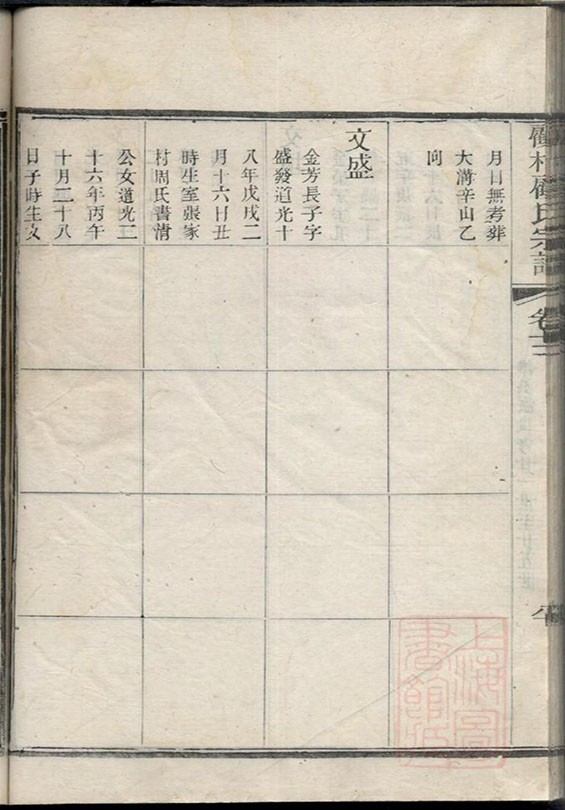 月日無考葬
大溝辛山乙
向
文盛
金芳長子字
盛發道光十
八年戊戌二
月十六日丑
時生室張家
村周氏書清
公女道光二
十六年丙午
十月二十八
日子時生文
氏宗譜
卷十二
上海圖書館藏